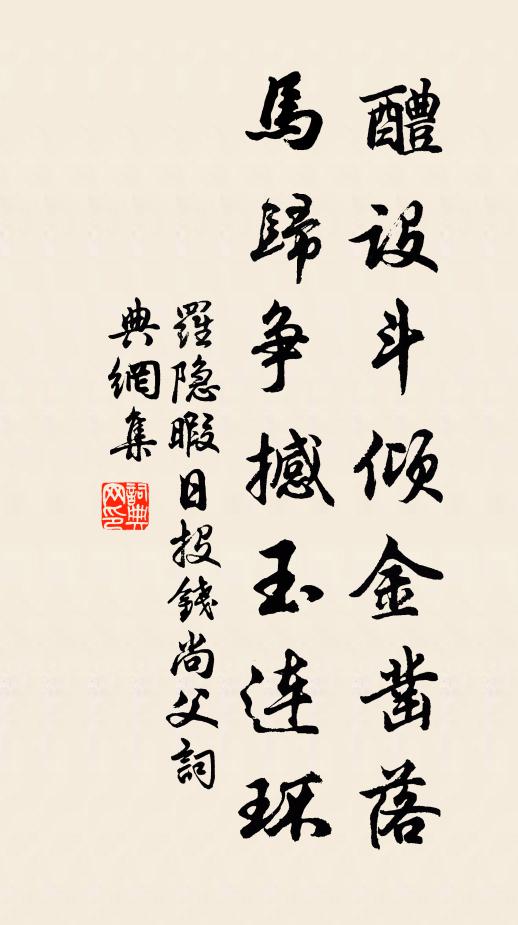 醴設斗傾金凿落
馬歸争撼玉連环
羅隐暇日投錢尚父詞
典網集
詞典网印